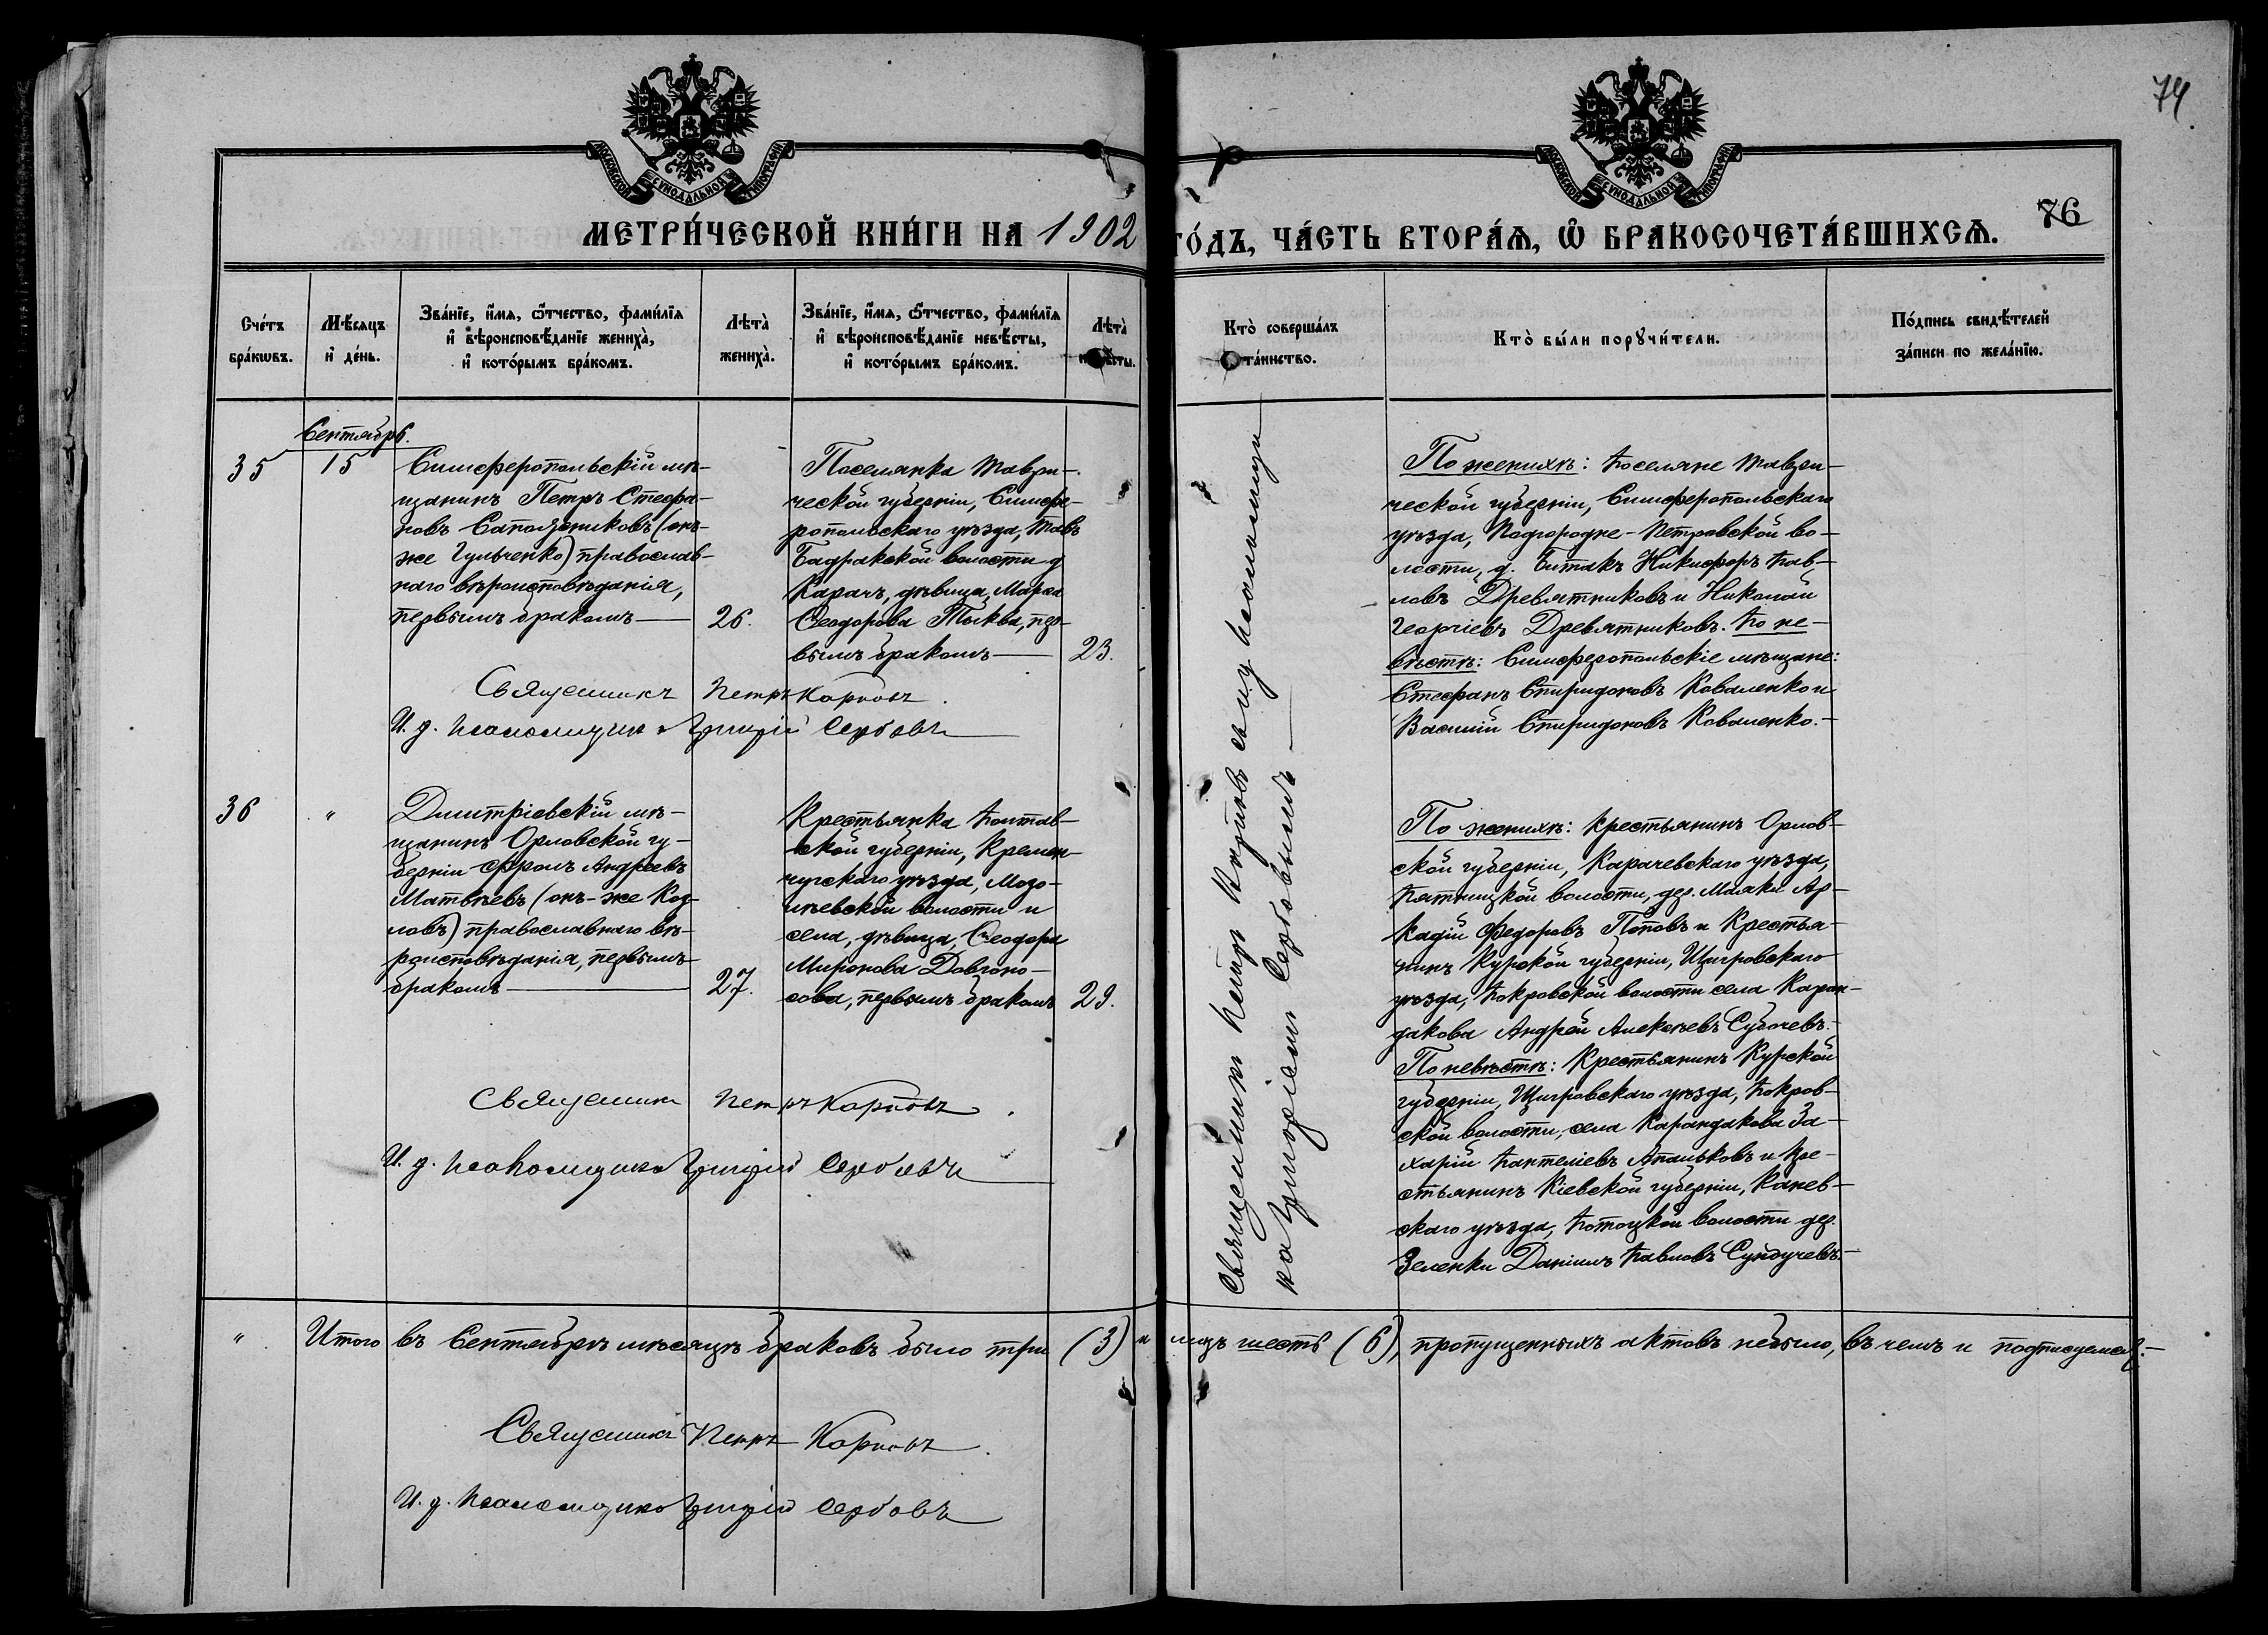 74
МОСКОВСКОЙ СУНОДАЛЬНОЙ ТИПОГРАФІИ
МОСКОВСКОЙ СУНОДАЛЬНОЙ ТИПОГРАФІИ
МЕТРИ́ЧЕСКОЙ КНИ́ГИ НА 1902
ГО́ДЪ, ЧА́СТЬ ВТОРА́Ѧ, Ѽ БРАКОСОЧЕТА́ВШИХСѦ.
76
Сче́тъ бра́кѡвъ.
Мѣ́сяцъ и҆ де́нь.
Зва́нїе, и҆́мѧ, ѻ҆́тчество, фами́лїѧ и҆ вѣроисповѣ́данїе жениха̀, и҆ кото́рымъ бра́комъ.
Лѣта̀ жениха̀.
Зва́нїе, и҆́мѧ, ѻ҆́тчество, фами́лїѧ и҆ вѣроисповѣ́данїе невѣ́сты, и҆ кото́рымъ бра́комъ.
Лѣта̀ невѣ́сты.
Кто̀ соверша́лъ та́инство.
Кто̀ бы́ли порꙋчи́тели.
По́дпись свидѣ́телей за́писи по жела́нїю.
Сентябрь.
35
15
Симферопольскій мѣ-
щанинъ Петръ Стефа-
новъ Сапожниковъ (онъ-
же Гульченко) православ-
наго вѣроисповѣданія,
первымъ бракомъ
26.
Поселянка Таври-
ческой губерніи, Симфе-
ропольскаго уѣзда, Тавъ
Бадракской волости д
Карачъ, дѣвица, Марѳа
Ѳеодорова Тыква, пер-
вымъ бракомъ
23.
Священникъ Петръ Карповъ.
И. д. псаломщика Григорій Сербовъ
Священникъ Петръ Карповъ съ и. д. псаломщи
ка Григоріемъ Сербовымъ
По женихѣ: поселяне Таври-
ческой губерніи, Симферопольскаго
уѣзда, Подгородне-Петровской во-
лости, д. Битакъ Никифоръ Пав-
ловъ Древятниковъ и Николай
Георгіевъ Древятниковъ. По не-
вѣстѣ: Симферопольскіе мѣщане:
Стефанъ Спиридоновъ Коваленко и
Василій Спиридоновъ Коваленко.
36
"
Дмитріевскій мѣ-
щанинъ Орловской гу-
берніи Фролъ Андреевъ
Матвѣевъ (онъ-же Коз-
ловъ) православнаго вѣ-
роисповѣданія, первымъ
бракомъ
27.
Крестьянка Полтав-
ской губерніи, Кремен-
чугскаго уѣзда, Мозо-
лѣевской волости и
села, дѣвица, Ѳеодора
Миронова Довгоно-
сова, первымъ бракомъ
29.
Священникъ Петръ Карповъ.
И. д. псаломщика Григорій Сербовъ
По женихѣ: крестьянинъ Орлов-
ской губерніи, Карачевскаго уѣзда,
Пятницкой волости, дер. Маяки Ар-
кадій Федоровъ Поповъ и крестья-
нинъ Курской губерніи, Щигровскаго
уѣзда, Покровской волости села Каран-
дакова Андрей Алексѣевъ Субочевъ.
По невѣстѣ: Крестьянинъ Курской
губерніи, Щигровскаго уѣзда, Покров-
ской волости, села Карандакова За-
харій Пантеліевъ Апальковъ и кре-
стьянинъ Кіевской губерніи, Канев-
скаго уѣзда, Потоцкой волости дер.
Зеленки Даніилъ Павловъ Сундучевъ.
" Итого въ Сентябрѣ мѣсяцѣ браковъ было три (3) и лицъ шесть (6), пропущенныхъ актовъ небыло, въ чемъ и подписуемся.
Священникъ Петръ Карповъ.
И. д. псаломщика Григорій Сербовъ